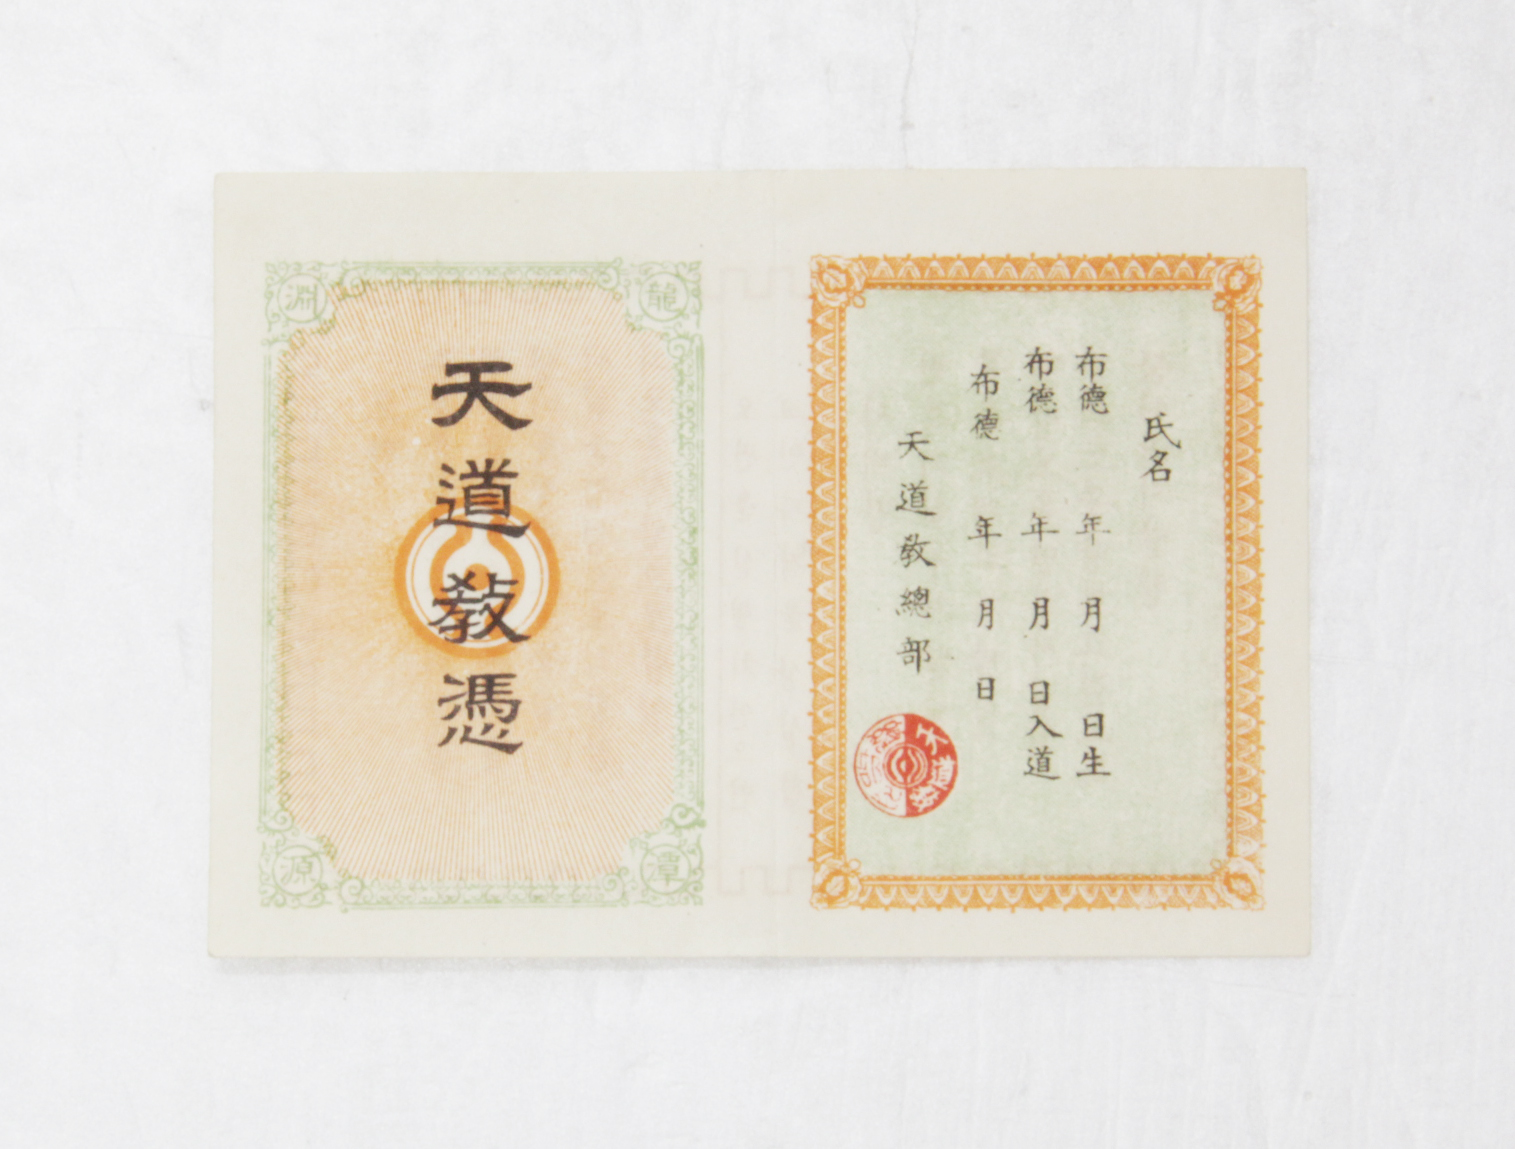 氏名
布德 年 月 日生
布德 年 月 日入道
布德 年 月 日
天道教總部
天道教
龍
潭
天道教憑
淵
源